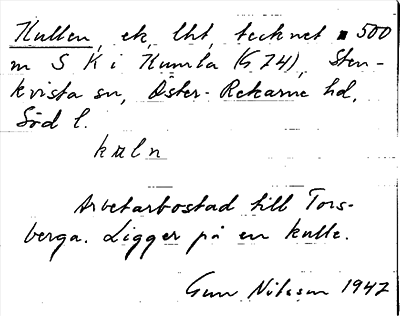 Kullen, ek, lht, tecknet 500
m S K i Humla (G 74), Sten-
kvista sn, Öster-Rekarne hd,
Söd l.
kɯln
Arbetarbostad till Tors-
berga. Ligger på en kulle.
Gun Nilsson 1947